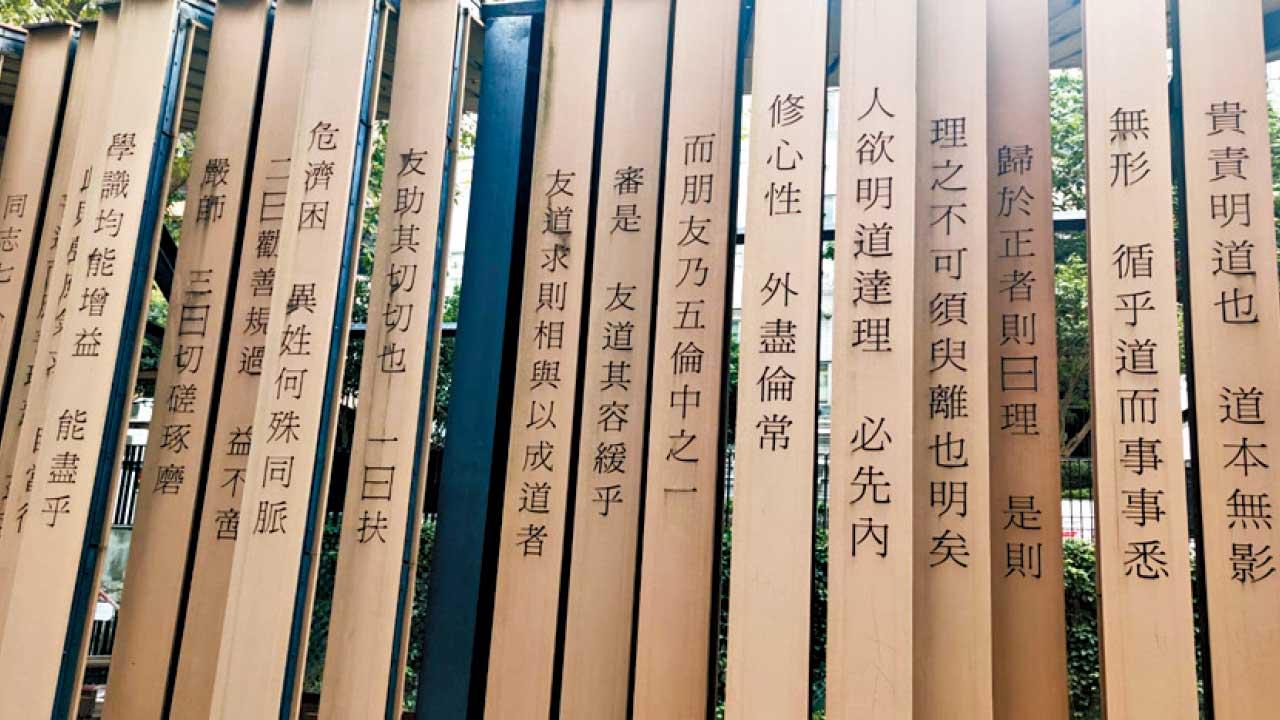 貴責明道也 道本無影
無形 循乎道而事事悉
歸於正者則曰理 是則
理之不可須臾離也明矣
人欲明道達理 必先內
修心性 外盡倫常
而朋友乃五倫中之一
審是 友道其容緩乎
友道求則相與以成道者
友助其切切也 一曰扶
危濟困 異姓何殊同脈
二曰勸善規過 益不啻
嚴師 三曰切磋琢磨
學識均能增益 能盡乎
同志七